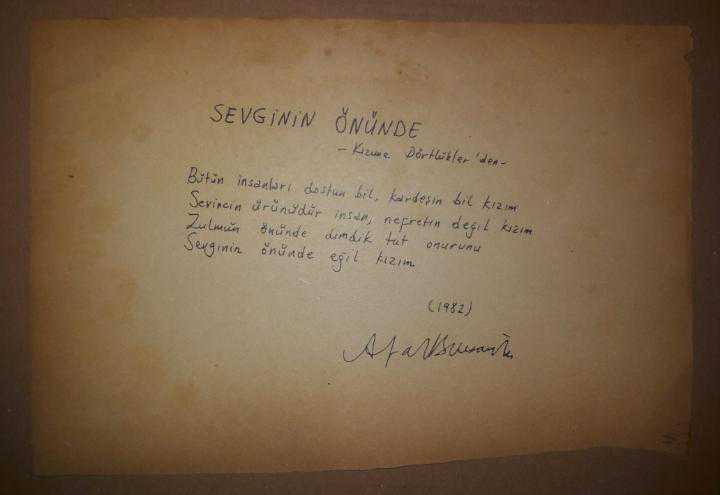 SEVGİNİN ÖNÜNDE
- Kızıma Dörtlükler'den -
Bütün insanları dostun bil, kardeşin bil kızım
Sevincin ürünüdür insan, nefretin değil kızım
Zulmün önünde dimdik tut onurunu
Sevginin önünde eğil kızım
(1982)